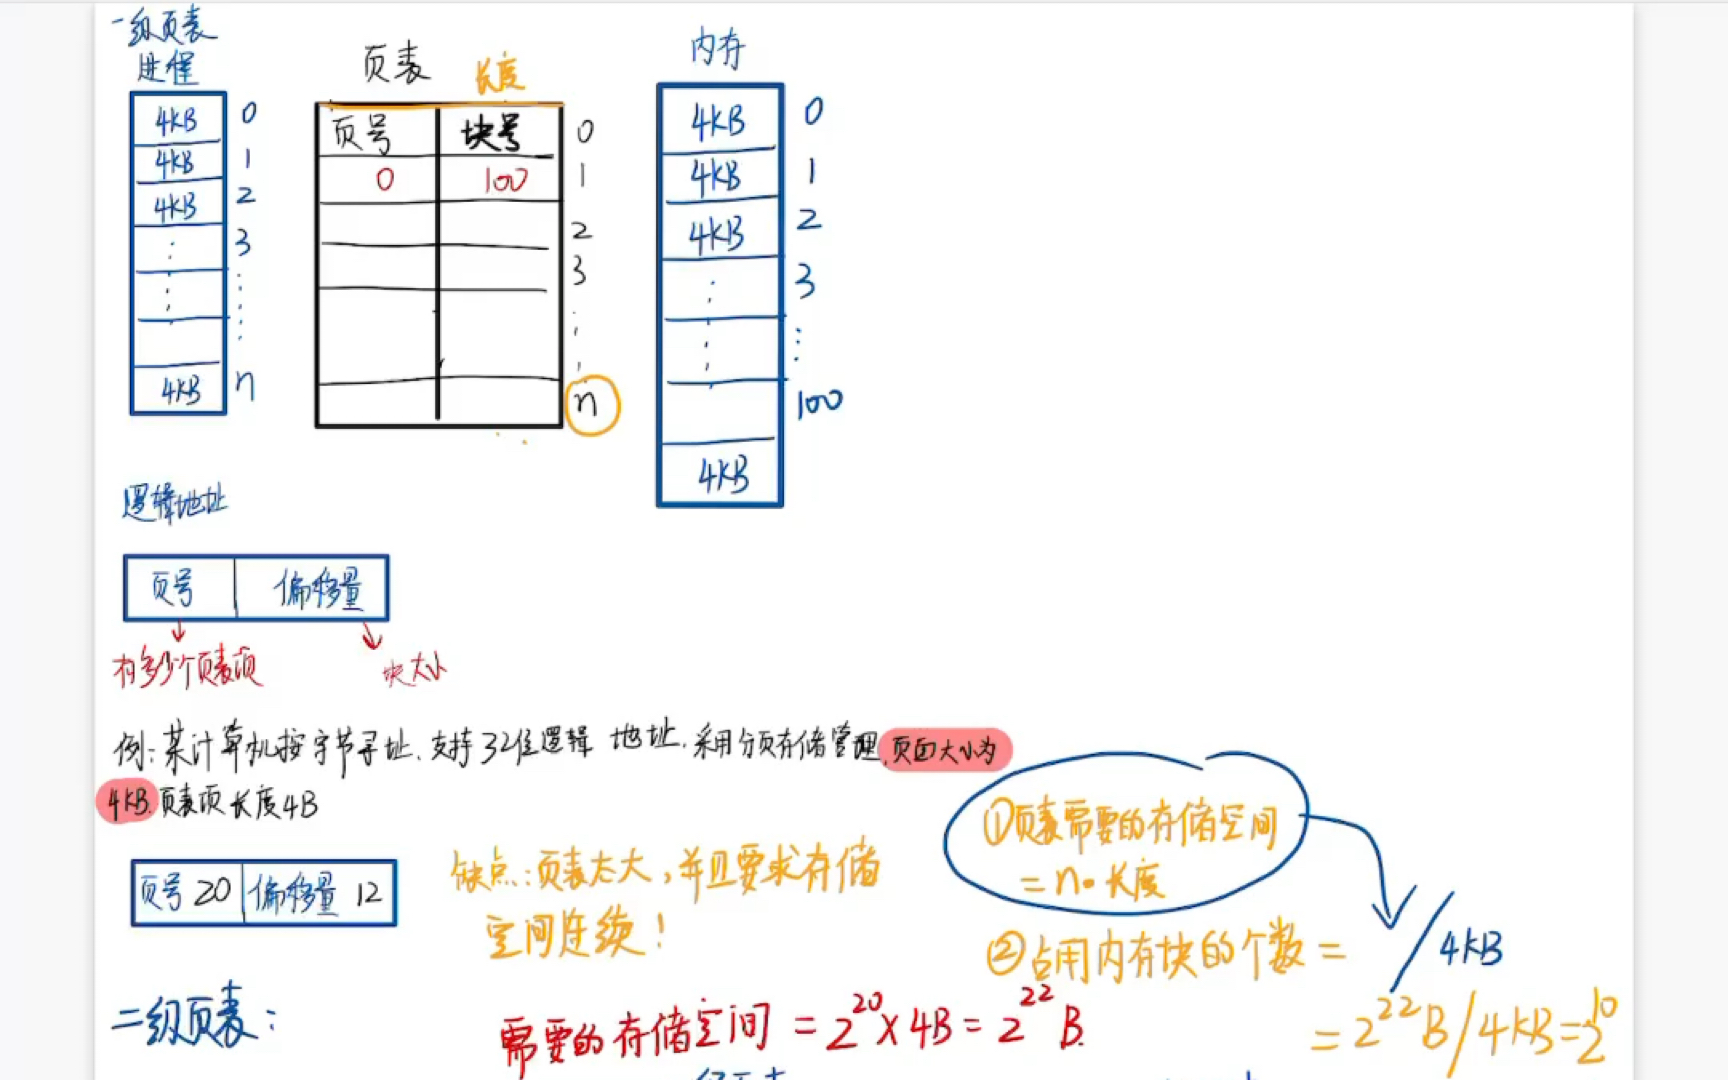 一级页表
进程
4KB 0
4KB 1
4KB 2
3
4KB n
页表 长度
页号 块号 0
0 100 1
2
3
n
内存
4KB 0
4KB 1
4KB 2
3
100
4KB
逻辑地址
页号 偏移量
有多少个页表项 块大小
例:某计算机按字节寻址.支持32位逻辑地址.采用分页存储管理,页面大小为
4KB.页表项长度4B
页号20 偏移量 12
缺点:页表太大,并且要求存储
空间连续!
①页表需要的存储空间
= n·长度
②占用内存块的个数 = / 4KB
= 2²²B/4KB=2¹⁰
二级页表:
需要的存储空间 = 2²⁰×4B = 2²² B.